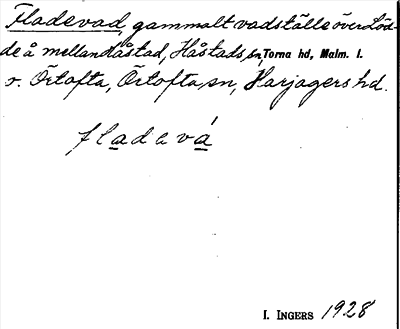 Fladevad, gammalt vadställe över Löd-
de å mellan Håstad, Håstads sn, Torna hd, Malm. l.
o. Örtofta, Örtofta sn, Harjagers hd.
fladevá
I. INGERS 1928